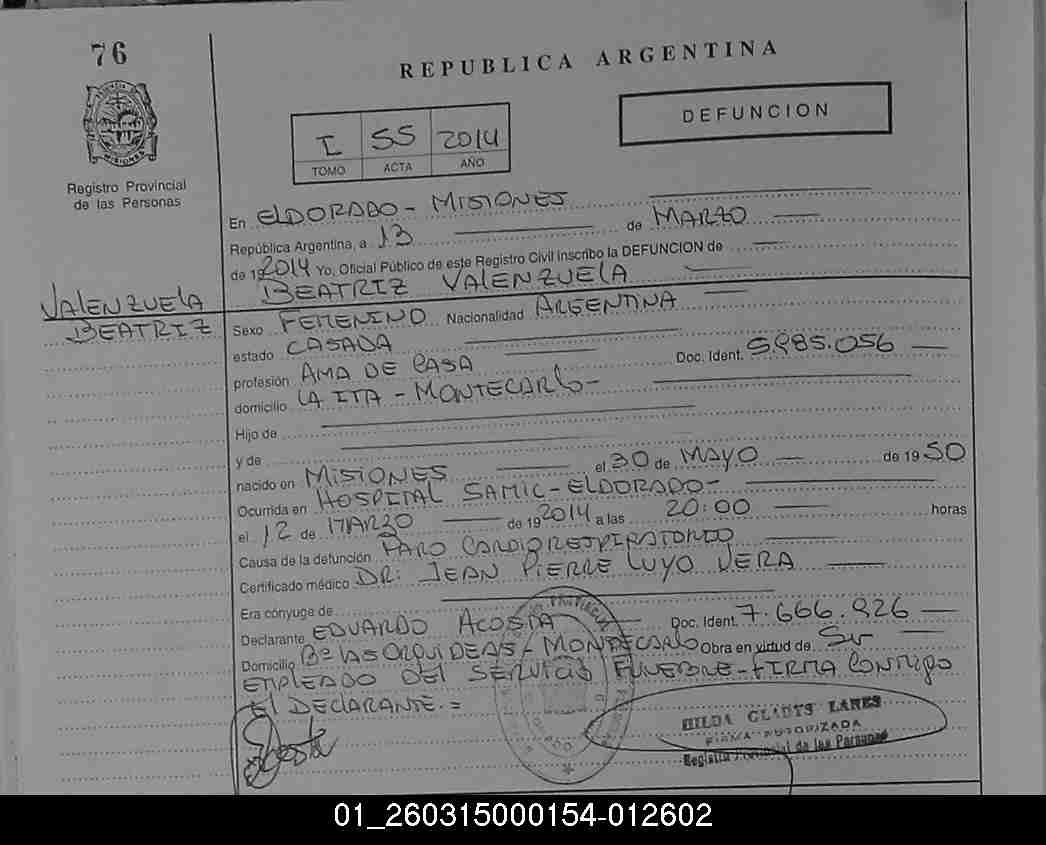 76
REPUBLICA ARGENTINA
DEFUNCION
I SS 2014
TOMO ACTA AÑO
PROVINCIA DE MISIONES
Registro Provincial
de las Personas
En ELDORADO - MISIONES
República Argentina, a 13 de MARZO
de 19 2014 Yo, Oficial Público de este Registro Civil inscribo la DEFUNCION de
BEATRIZ VALENZUELA
VALENZUELA
BEATRIZ
Sexo FEMENINO Nacionalidad ARGENTINA
estado CASADA
profesión AMA DE CASA Doc. Ident. 5.985.056
domicilio LA ITA - MONTECARLO -
Hijo de
y de
nacido en MISIONES el 30 de MAYO de 1950
Ocurrida en HOSPITAL SAMIC - ELDORADO -
el 12 de MARZO de 19 2014 a las 20:00 horas
Causa de la defunción PARO CARDIORESPIRATORIO
Certificado médico DR: JEAN PIERRE LUYO VERA
Era cónyuge de
Declarante EDUARDO ACOSTA Doc. Ident. 7.666.926
Domicilio Bº LAS ORQUIDEAS - MONTECARLO Obra en virtud de Sr
EMPLEADO DEL SERVICIO FUNEBRE - FIRMA CONMIGO
EL DECLARANTE. =
HILDA GLADYS LANES
FIRMA AUTORIZADA
Registro Provincial de las Personas
01_260315000154-012602